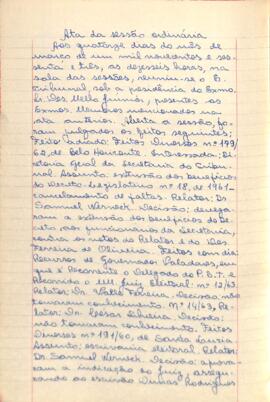 Ata da sessão ordinária
Aos quatorze dias do mês de
março de um mil novecentos e ses-
senta e três, às dezesseis horas, na
sala das sessões, reuniu-se o E.
Tribunal, sob a presidência do Exmo.
Dr. Mello Junior, presentes os
Exmos. mencionados na
ata anterior. Aberta a sessão, fo-
ram julgados os feitos seguintes:
Feito adiado: Feitos Diversos nº 199/
62, de Belo Horizonte. Interessada: Di-
retoria Geral da Secretaria do Tribu-
nal. Assunto: extensão dos benefícios
do Decreto-Legislativo nº 18, de 1961 -
cancelamento de faltas. Relator: Dr.
Samuel Werneck. Decisão: denega-
ram a extensão dos benefícios do De-
creto aos funcionários da Secretaria,
contra os votos do Relator e do Des.
Ferreira de Oliveira. Feitos com dia
Recursos de Governador Valadares, em
que é Recorrente o Delegado do P.S.T. e
Recorrido o MM. Juiz Eleitoral: nº 12/63.
Relator: Dr. Valle Ferreira. Decisão: não
tomaram conhecimento. Nº 14/63, Re-
lator: Dr. Cesar Silveira. Decisão:
não tomaram conhecimento. Feitos
Diversos nº 191/60, de Santa Luzia
Assunto: escrivania eleitoral. Relator:
Dr. Samuel Werneck. Decisão: aprova-
ram a indicação do Juiz, assegu-
rando ao escrivão Dimas Rodrigues